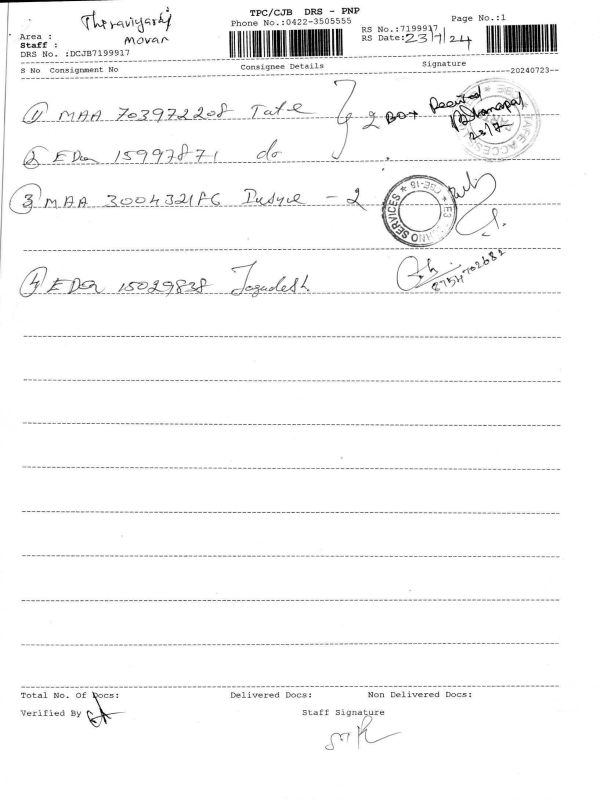 TPC/CJB DRS - PNP
Phone No.:0422-3505555
Page No.:1
Area :
Staff : Movar
RS No.:7199917
RS Date:23/7/24
DRS No. :DCJB7199917
S No Consignment No Consignee Details Signature
--20240723--
1) MAA 703972208 Tate } 2 Box Received
23/7
2 EDR 15997871 do
3 MAA 3004321FG - 2
4) EDR 15029838 Jagadesh
8754702682
Total No. Of Docs: Delivered Docs: Non Delivered Docs:
Verified By Staff Signature